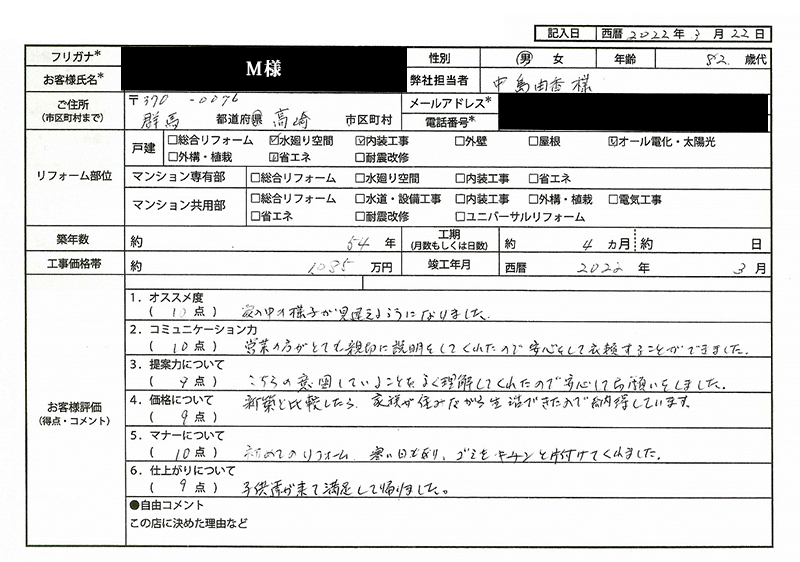 記入日 西暦 2022 年 3 月 22 日
フリガナ* M様 性別 男 女 年齢 82 歳代
お客様氏名* 弊社担当者 中島由香様
ご住所 (市区町村まで) 〒370-0076 メールアドレス*
群馬 都道府県 高崎 市区町村 電話番号*
リフォーム部位
戸建 □総合リフォーム ☑水廻り空間 ☑内装工事 □外壁 □屋根 ☑オール電化・太陽光
□外構・植栽 ☑省エネ □耐震改修
マンション専有部 □総合リフォーム □水廻り空間 □内装工事 □省エネ
マンション共用部 □総合リフォーム □水道・設備工事 □内装工事 □外構・植栽 □電気工事
□省エネ □耐震改修 □ユニバーサルリフォーム
築年数 約 54 年 工期 (月数もしくは日数) 約 4 ヵ月 約 日
工事価格帯 約 1,085 万円 竣工年月 西暦 2022 年 3 月
お客様評価
(得点・コメント)
1．オススメ度
( 10 点 ) 家の中の様子が見違えるようになりました。
2．コミュニケーション力
( 10 点 ) 営業の方がとても親切に説明をしてくれたので安心をして依頼することができました。
3．提案力について
( 9 点 ) こちらの意図していることをよく理解してくれたので安心してお願いをしました。
4．価格について
( 9 点 ) 新築と比較したら、家族が住みながら生活できたので納得しています。
5．マナーについて
( 10 点 ) 初めてのリフォーム、寒い日もあり、ゴミをキチンと片付けてくれました。
6．仕上がりについて
( 9 点 ) 子供達が来て満足して帰りました。
●自由コメント
この店に決めた理由など